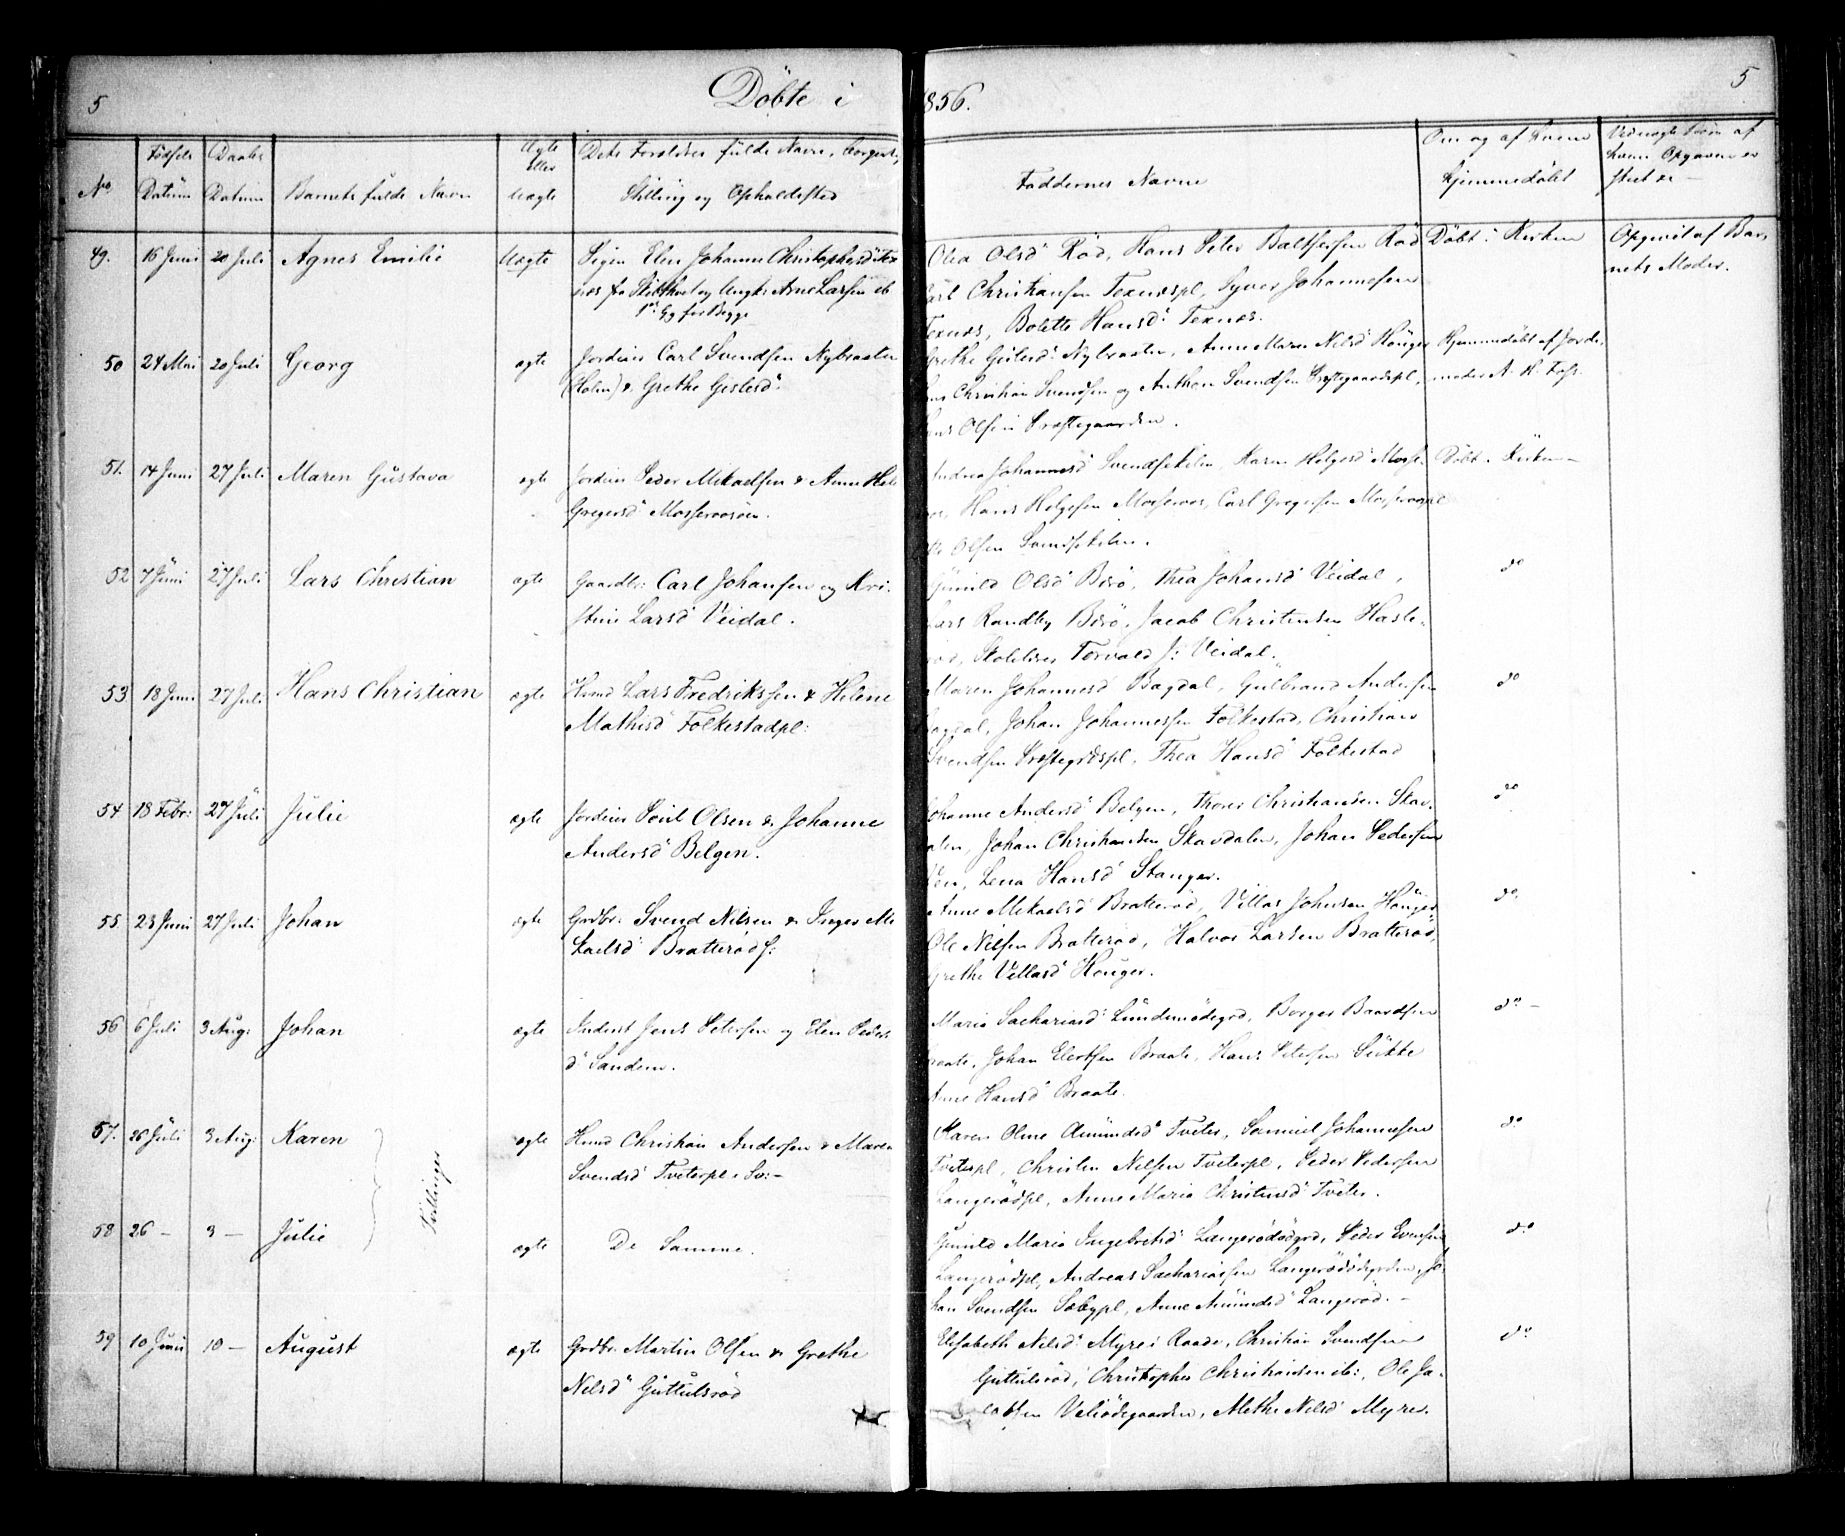 5
Döbte i
1856.
5
No
Fødsels
Datum
Daabs
Datum
Barnets fulde Navn
Ægte
eller
Uægte
Dets Forældres fulde Navn, Borgerl.
Stilling og Opholdssted
Faddernes Navne
Om og af Hvem
hjemmedøbt
af
hvem Opgaven er
skeet
49. 16 Juni 20 Juli Agnes Emilie Uægte Pigen Elen Johanne Christophersd Tex
næs og Ungk. Arne Larsen ib
1ste Gg for Begge
Olea Olsd Röd, Hans Peter Balthersen Röd Döbt i Kirken Opgivet af Bar
Carl Christiansen Texnæspl, Syver Johannesen nets Moder.
Texnæs, Bolette Hansd: Texnæs.
50 24 Mai 20 Juli Georg ægte Jordeier Carl Svendsen Nybraaten
(Holm) & Grethe Gislesd:
Grethe Gislesd: Nybraaten, Anne Maria Nilsd Houger Hjemmedöbt af Jorde
Christian Svendsen og Anthon Svendsen Præstegaardspl, moder A. H. Foss.
Olsen Præstegaarden.
51. 14 Juni 27 Juli Maren Gustava ægte Jordeier Peder Mikaelsen & Anne Hel
Gregersd Mosserosöen.
Andrea Johannesd Svendsekilen, Karen Helgesd Mosse Döbt i Kirken
Hans Helgesen Mosseros, Carl Gregersen Mosserospl
Olsen Svendsekilen.
52 7 Juni 27 Juli Lars Christian ægte Gaardbr: Carl Johansen og Kri-
stine Larsd Veidal.
Gunild Olsd Berö, Thea Johansd Veidal, do
Lars Randby Berö, Jacob Christensen Hasle-
röd, Skolelærer Torvald J: Veidal.
53 18 Juni 27 Juli Hans Christian ægte Husmd Lars Fredriksen & Helene
Mathisd Folkestadpl:
Maren Johannesd Bagdal, Gulbrand Andersen do
Bagdal, Johan Johannessen Folkestad, Christian
Svendsen Præstegrdspl, Thea Hansd Folkestad
54 18 Febr: 27 Juli Julie ægte Jordeier Poul Olsen & Johanne
Andersd Belgen.
Johanne Andersd Belgen, Thorer Christiansen Stav- do
dalen, Johan Christiansen Stavdalen, Johan Pedersen
Lena Hansd Stanger.
55 23 Juni 27 Juli Johan ægte Grdbr: Svend Nilsen & Inger Mi
kaelsd Bratterödf:
Anne Mikaelsd Bratteröd, Villas Johnsen Houger do
Ole Nilsen Bratteröd, Halvor Larsen Bratteröd,
Grethe Villasd Houger.
56 6 Juli 3 Aug: Johan ægte Inderst Jens Petersen og Elen Peders
d Sandem.
Maria Sachariasd Lundsnödegrd, Borger Baardsen do
Braate, Johan Elertsen Braate, Hans Petersen Sukke
Anne Hansd Braate.
57. 26 Juli 3 Aug: Karen ægte Husmd Christian Andersen & Maren
Svendsd Tveterpl
Karen Oline Amundsd Tveter, Samuel Johannesen do
Tveterpl, Christen Nilsen Tveterpl, Peder Pedersen
Langerödpl, Anne Maria Christensd Tveter.
Tvillinger
58 26 – 3 – Julie ægte De Samme.
Gunild Maria Ingebretsd Langerödödegrd, Peder Evensen do
Langerödpl, Andreas Sachariasen Langerödödegrden, Jo-
han Svendsen Sæbypl, Anne Amundsd Langeröd.
59 10 Juni 10 – August ægte Grdbr: Martin Olsen & Grethe
Nilsd Guttulsröd
Elisabeth Nilsd Myre i Raade, Christian Svendsen do
Guttulsröd, Christopher Christiansen ib:, Ole Ja-
cobsen Velödegaarden, Alethe Nilsd Myre.